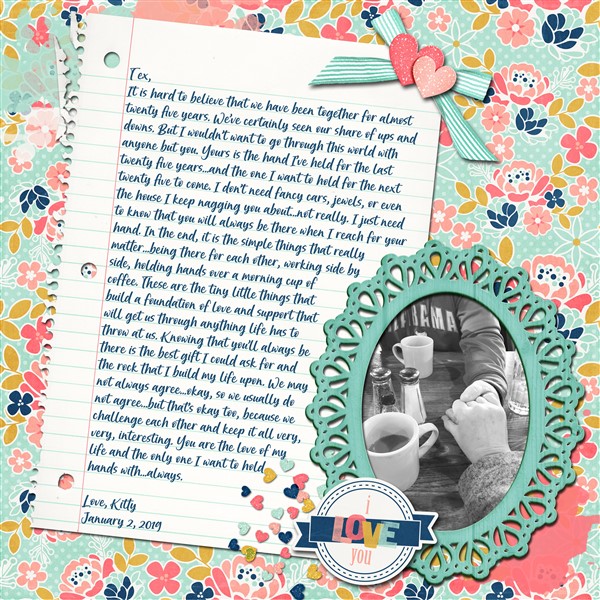 Tex,
It is hard to believe that we have been together for almost
twenty five years. We've certainly seen our share of ups and
downs. But I wouldn't want to go through this world with
anyone but you. Yours is the hand I've held for the last
twenty five years...and the one I want to hold for the next
twenty five to come. I don't need fancy cars, jewels, or even
the house I keep nagging you about...not really. I just need
to know that you will always be there when I reach for your
hand. In the end, it is the simple things that really
matter...being there for each other, working side by
side, holding hands over a morning cup of
coffee. These are the tiny little things that
build a foundation of love and support that
will get us through anything life has to
throw at us. Knowing that you'll always be
there is the best gift I could ask for and
the rock that I build my life upon. We may
not always agree...okay, so we usually do
not agree...but that's okay too, because we
challenge each other and keep it all very,
very, interesting. You are the love of my
life and the only one I want to hold
hands with...always.
Love, Kitty
January 2, 2019
i
LOVE
you